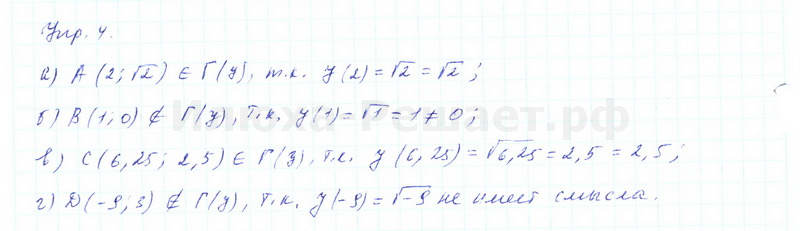 Упр. 4.
а) A (2; √2) ∈ Г(y), т.к. y(2) = √2 = √2;
б) B(1; 0) ∉ Г(y), т.к. y(1) = √1 = 1 ≠ 0;
в) C(6,25; 2,5) ∈ Г(y), т.к. y(6,25) = √6,25 = 2,5 = 2,5;
г) D(-9; 3) ∉ Г(y), т.к. y(-9) = √-9 не имеет смысла.
Илюха-Решает.рф